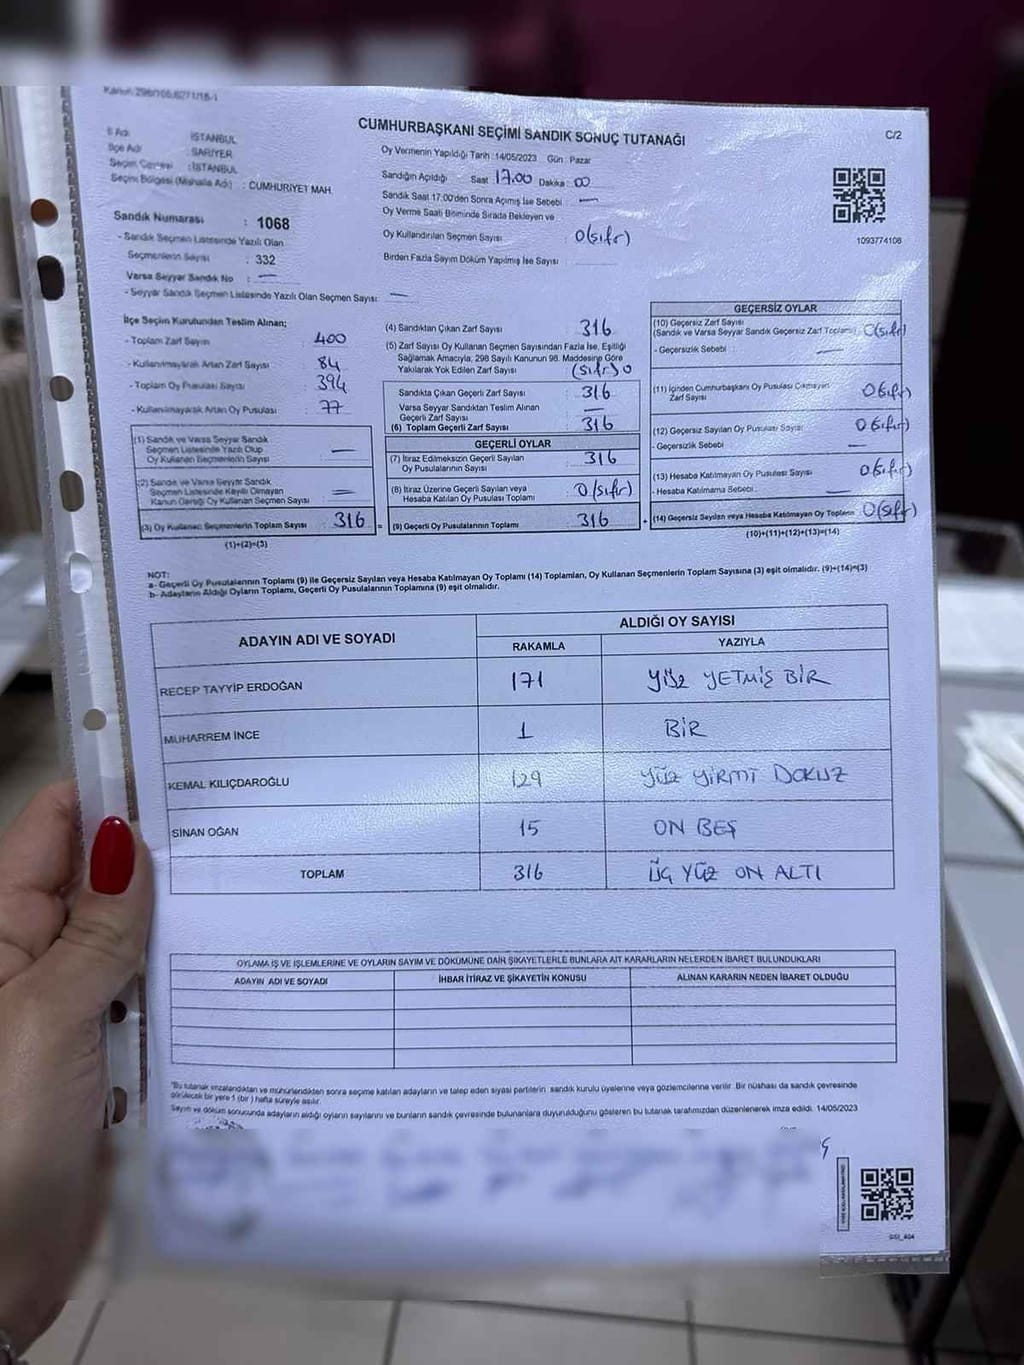 Kanun 298/105,6271/16-i
CUMHURBAŞKANI SEÇİMİ SANDIK SONUÇ TUTANAĞI
C/2
İl Adı : İSTANBUL
İlçe Adı : SARIYER
Seçim Çevresi : İSTANBUL
Seçim Bölgesi (Mahalle Adı) : CUMHURİYET MAH.
Sandık Numarası : 1068
- Sandık Seçmen Listesinde Yazılı Olan
Seçmenlerin Sayısı : 332
Varsa Seyyar Sandık No : —
- Seyyar Sandık Seçmen Listesinde Yazılı Olan Seçmen Sayısı : —
Oy Vermenin Yapıldığı Tarih :14/05/2023 Gün : Pazar
Sandığın Açıldığı Saat : 17.00 Dakika : 00
Sandık Saat 17.00'den Sonra Açılmış İse Sebebi : —
Oy Verme Saati Bitiminde Sırada Bekleyen ve
Oy Kullandırılan Seçmen Sayısı : 0(sıfır)
Birden Fazla Sayım Döküm Yapılmış İse Sayısı :
1093774106
İlçe Seçim Kurulundan Teslim Alınan;
- Toplam Zarf Sayısı : 400
- Kullanılmayarak Artan Zarf Sayısı : 84
- Toplam Oy Pusulası Sayısı : 394
- Kullanılmayarak Artan Oy Pusulası : 77
(1) Sandık ve Varsa Seyyar Sandık
Seçmen Listesinde Yazılı Olup
Oy Kullanan Seçmenlerin Sayısı : —
(2) Sandık ve Varsa Seyyar Sandık
Seçmen Listesinde Kayıtlı Olmayan
Kanun Gereği Oy Kullanan Seçmen Sayısı : —
(3) Oy Kullanan Seçmenlerin Toplam Sayısı : 316 =
(1)+(2)=(3)
(4) Sandıktan Çıkan Zarf Sayısı : 316
(5) Zarf Sayısı Oy Kullanan Seçmen Sayısından Fazla İse, Eşitliği
Sağlamak Amacıyla, 298 Sayılı Kanunun 98. Maddesine Göre
Yakılarak Yok Edilen Zarf Sayısı : (sıfır)0
Sandıkta Çıkan Geçerli Zarf Sayısı : 316
Varsa Seyyar Sandıktan Teslim Alınan
Geçerli Zarf Sayısı : —
(6) Toplam Geçerli Zarf Sayısı : 316
GEÇERLİ OYLAR
(7) İtiraz Edilmeksizin Geçerli Sayılan
Oy Pusulalarının Sayısı : 316
(8) İtiraz Üzerine Geçerli Sayılan veya
Hesaba Katılan Oy Pusulası Toplamı : 0(sıfır)
(9) Geçerli Oy Pusulalarının Toplamı : 316 +
GEÇERSİZ OYLAR
(10) Geçersiz Zarf Sayısı
(Sandık ve Varsa Seyyar Sandık Geçersiz Zarf Toplamı) : 0(sıfır)
- Geçersizlik Sebebi : —
(11) İçinden Cumhurbaşkanı Oy Pusulası Çıkmayan
Zarf Sayısı : 0(sıfır)
(12) Geçersiz Sayılan Oy Pusulası Sayısı : 0(sıfır)
- Geçersizlik Sebebi : —
(13) Hesaba Katılmayan Oy Pusulası Sayısı : 0(sıfır)
- Hesaba Katılmama Sebebi : —
(14) Geçersiz Sayılan veya Hesaba Katılmayan Oy Toplamı : 0(sıfır)
(10)+(11)+(12)+(13)=(14)
NOT:
a- Geçerli Oy Pusulalarının Toplamı (9) ile Geçersiz Sayılan veya Hesaba Katılmayan Oy Toplamı (14) Toplamları, Oy Kullanan Seçmenlerin Toplam Sayısına (3) eşit olmalıdır. (9)+(14)=(3)
b- Adayların Aldığı Oyların Toplamı, Geçerli Oy Pusulalarının Toplamına (9) eşit olmalıdır.
ADAYIN ADI VE SOYADI
ALDIĞI OY SAYISI
RAKAMLA YAZIYLA
RECEP TAYYİP ERDOĞAN 171 YÜZ YETMİŞ BİR
MUHARREM İNCE 1 BİR
KEMAL KILIÇDAROĞLU 129 YÜZ YİRMİ DOKUZ
SİNAN OĞAN 15 ON BEŞ
TOPLAM 316 ÜÇ YÜZ ON ALTI
OYLAMA İŞ VE İŞLEMLERİNE VE OYLARIN SAYIM VE DÖKÜMÜNE DAİR ŞİKAYETLERLE BUNLARA AİT KARARLARIN NELERDEN İBARET BULUNDUKLARI
ADAYIN ADI VE SOYADI İHBAR İTİRAZ VE ŞİKAYETİN KONUSU ALINAN KARARIN NEDEN İBARET OLDUĞU
*Bu tutanak imzalandıktan ve mühürlendikten sonra seçime katılan adayların ve talep eden siyasi partilerin sandık kurulu üyelerine veya gözlemcilerine verilir. Bir nüshası da sandık çevresinde
görülecek bir yere 1 (bir) hafta süreyle asılır.
Sayım ve döküm sonucunda adayların aldığı oyların sayılarını ve bunların sandık çevresinde bulunanlara duyurulduğunu gösteren bu tutanak tarafımızdan düzenlenerek imza edildi. 14/05/2023